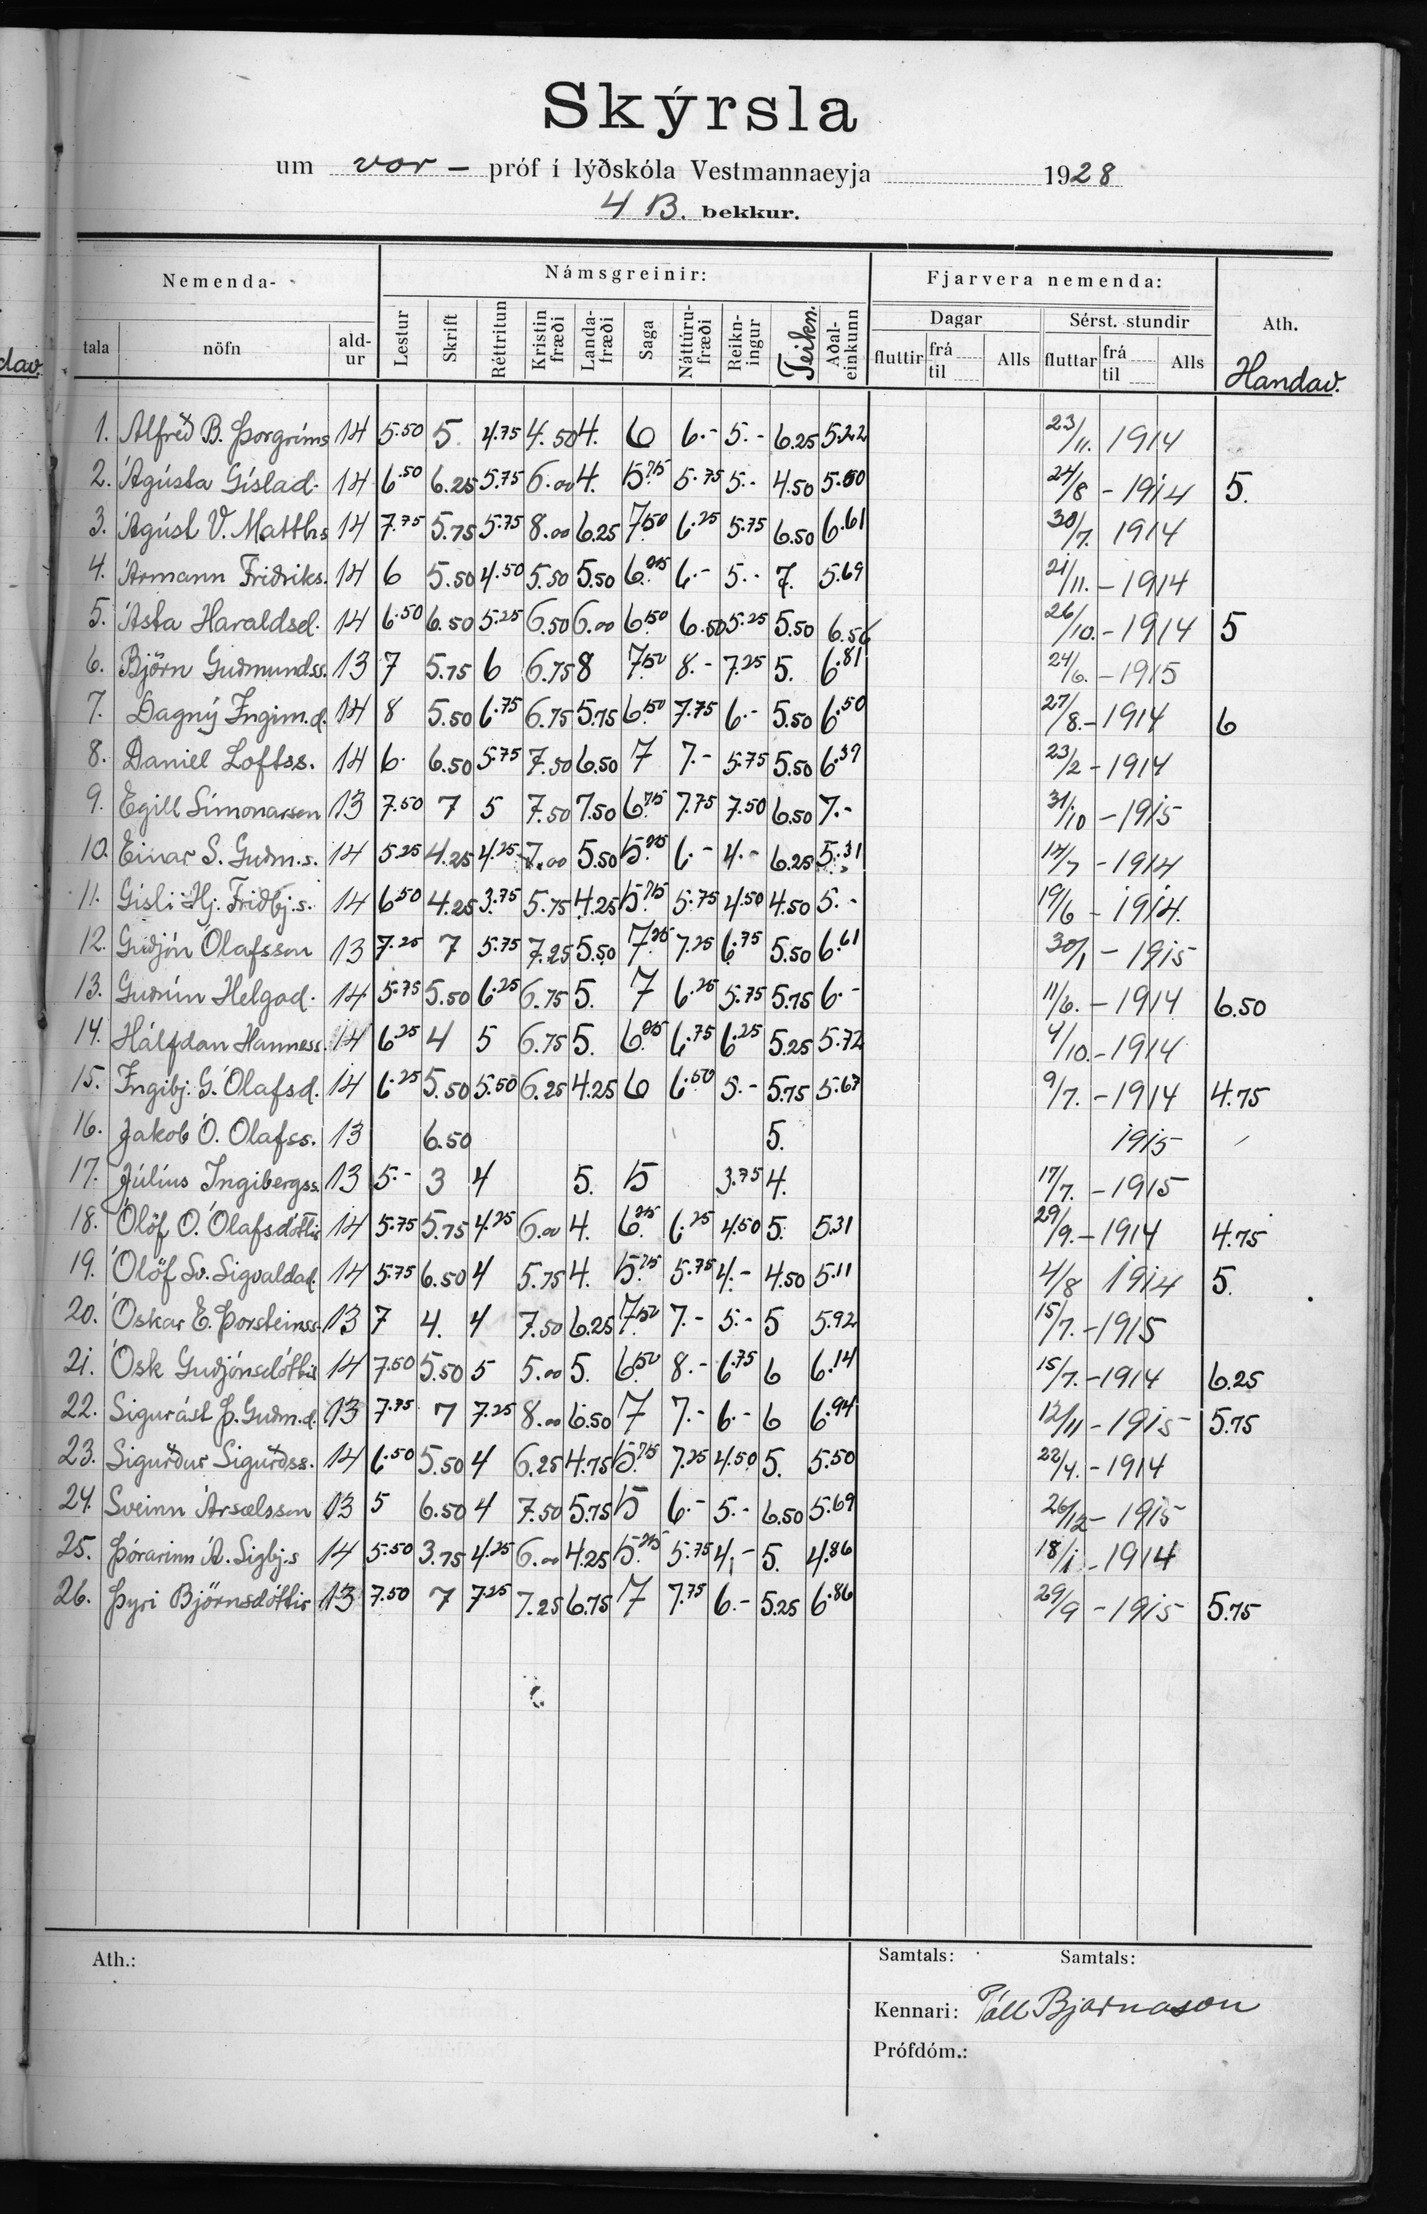 Skýrsla
um vor – próf í lýðskóla Vestmannaeyja 1928
4 B. bekkur.
Nemenda- Námsgreinir: Fjarvera nemenda: Ath.
tala nöfn ald-ur Lestur Skrift Réttritun Kristin fræði Landa-fræði Saga Náttúru-fræði Reikn-ingur Teikn. Aðal-einkunn Dagar fluttir frá til Alls Sérst. stundir fluttar frá til Alls Handav.
1. Alfreð B. Þorgríms 14 5.50 5. 4.75 4.50 4. 6 6.- 5.- 6.25 5.22 23/11. 1914
2. Ágústa Gíslad. 14 6.50 6.25 5.75 6.00 4. 5.75 5.75 5.- 4.50 5.50 24/8 - 1914 5.
3. Ágúst V. Matth.s 14 7.75 5.75 5.75 8.00 6.25 7.50 6.25 5.75 6.50 6.61 30/7. 1914
4. Ármann Friðriks. 14 6 5.50 4.50 5.50 5.50 6.25 6.- 5.- 7. 5.69 21/11. - 1914
5. Ásta Haraldsd. 14 6.50 6.50 5.25 6.50 6.00 6.50 6.50 5.25 5.50 6.56 26/10. - 1914 5
6. Björn Guðmundss. 13 7 5.75 6 6.75 8 7.50 8.- 7.25 5. 6.81 24/6. - 1915
7. Dagný Ingim.d. 14 8 5.50 6.75 6.75 5.75 6.50 7.75 6.- 5.50 6.50 27/8. - 1914 6
8. Daniel Loftss. 14 6. 6.50 5.75 7.50 6.50 7 7.- 5.75 5.50 6.39 23/2 - 1914
9. Egill Símonarson 13 7.50 7 5 7.50 7.50 6.75 7.75 7.50 6.50 7.- 31/10 - 1915
10. Einar S. Guðm.s. 14 5.25 4.25 4.25 7.00 5.50 5.25 6.- 4.- 6.25 5.31 14/7 - 1914
11. Gísli Hj. Friðbj.s. 14 6.50 4.25 3.75 5.75 4.25 5.75 5.75 4.50 4.50 5.- 19/6 - 1914.
12. Guðjón Ólafsson 13 7.25 7 5.75 7.25 5.50 7.25 7.25 6.75 5.50 6.61 30/1 - 1915
13. Guðrún Helgad. 14 5.75 5.50 6.25 6.75 5. 7 6.25 5.75 5.75 6.- 11/6. - 1914 6.50
14. Hálfdan Hanness. 14 6.25 4 5 6.75 5. 6.25 6.75 6.25 5.25 5.72 4/10. - 1914
15. Ingibj. G. Ólafsd. 14 6.25 5.50 5.50 6.25 4.25 6 6.50 5.- 5.75 5.67 9/7. - 1914 4.75
16. Jakob Ó. Ólafss. 13 6.50 5. 1915
17. Júlíus Ingibergss. 13 5.- 3 4 5. 5 3.75 4. 17/7. - 1915
18. Ólöf O. Ólafsdóttir 14 5.75 5.75 4.25 6.00 4. 6.25 6.25 4.50 5. 5.31 29/9. - 1914 4.75
19. Ólöf Sv. Sigvaldad. 14 5.75 6.50 4 5.75 4. 5.75 5.75 4.- 4.50 5.11 4/8 1914 5.
20. Óskar E. Þorsteinss. 13 7 4. 4 7.50 6.25 7.50 7.- 5.- 5 5.92 15/7. - 1915
21. Ósk Guðjónsdóttir 14 7.50 5.50 5 5.00 5. 6.50 8.- 6.75 6 6.14 15/7. - 1914 6.25
22. Sigurást Þ. Guðm.d. 13 7.75 7 7.25 8.00 6.50 7 7.- 6.- 6 6.94 12/11 - 1915 5.75
23. Sigurður Sigurðss. 14 6.50 5.50 4 6.25 4.75 5.75 7.25 4.50 5. 5.50 22/4. - 1914
24. Sveinn Ársælsson 13 5 6.50 4 7.50 5.75 5 6.- 5.- 6.50 5.69 26/12 - 1915
25. Þórarinn Á. Sigbj.s 14 5.50 3.75 4.25 6.00 4.25 5.25 5.75 4.- 5. 4.86 18/1 - 1914
26. Þyri Björnsdóttir 13 7.50 7 7.25 7.25 6.75 7 7.75 6.- 5.25 6.86 29/9 - 1915 5.75
Ath.: Samtals: Samtals:
Kennari: Páll Bjarnason
Prófdóm.: